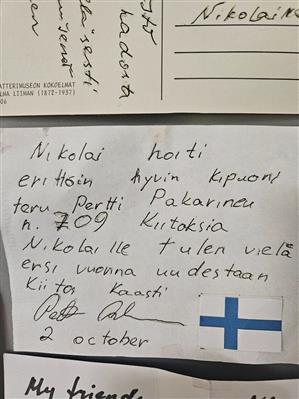 Nikolai
hadosta
ATTERIMUSEON KOKOELMAT
LMA LIIMAN (1872-1937)
06
Nikolai hoiti
erittäin hyvin kipuoni
teru Pertti Pakarinen
n. 709 Kiitoksia
Nikolaille tulen vielä
ensi vuonna uudestaan
Kiitos Kaasti
2 october
My friends